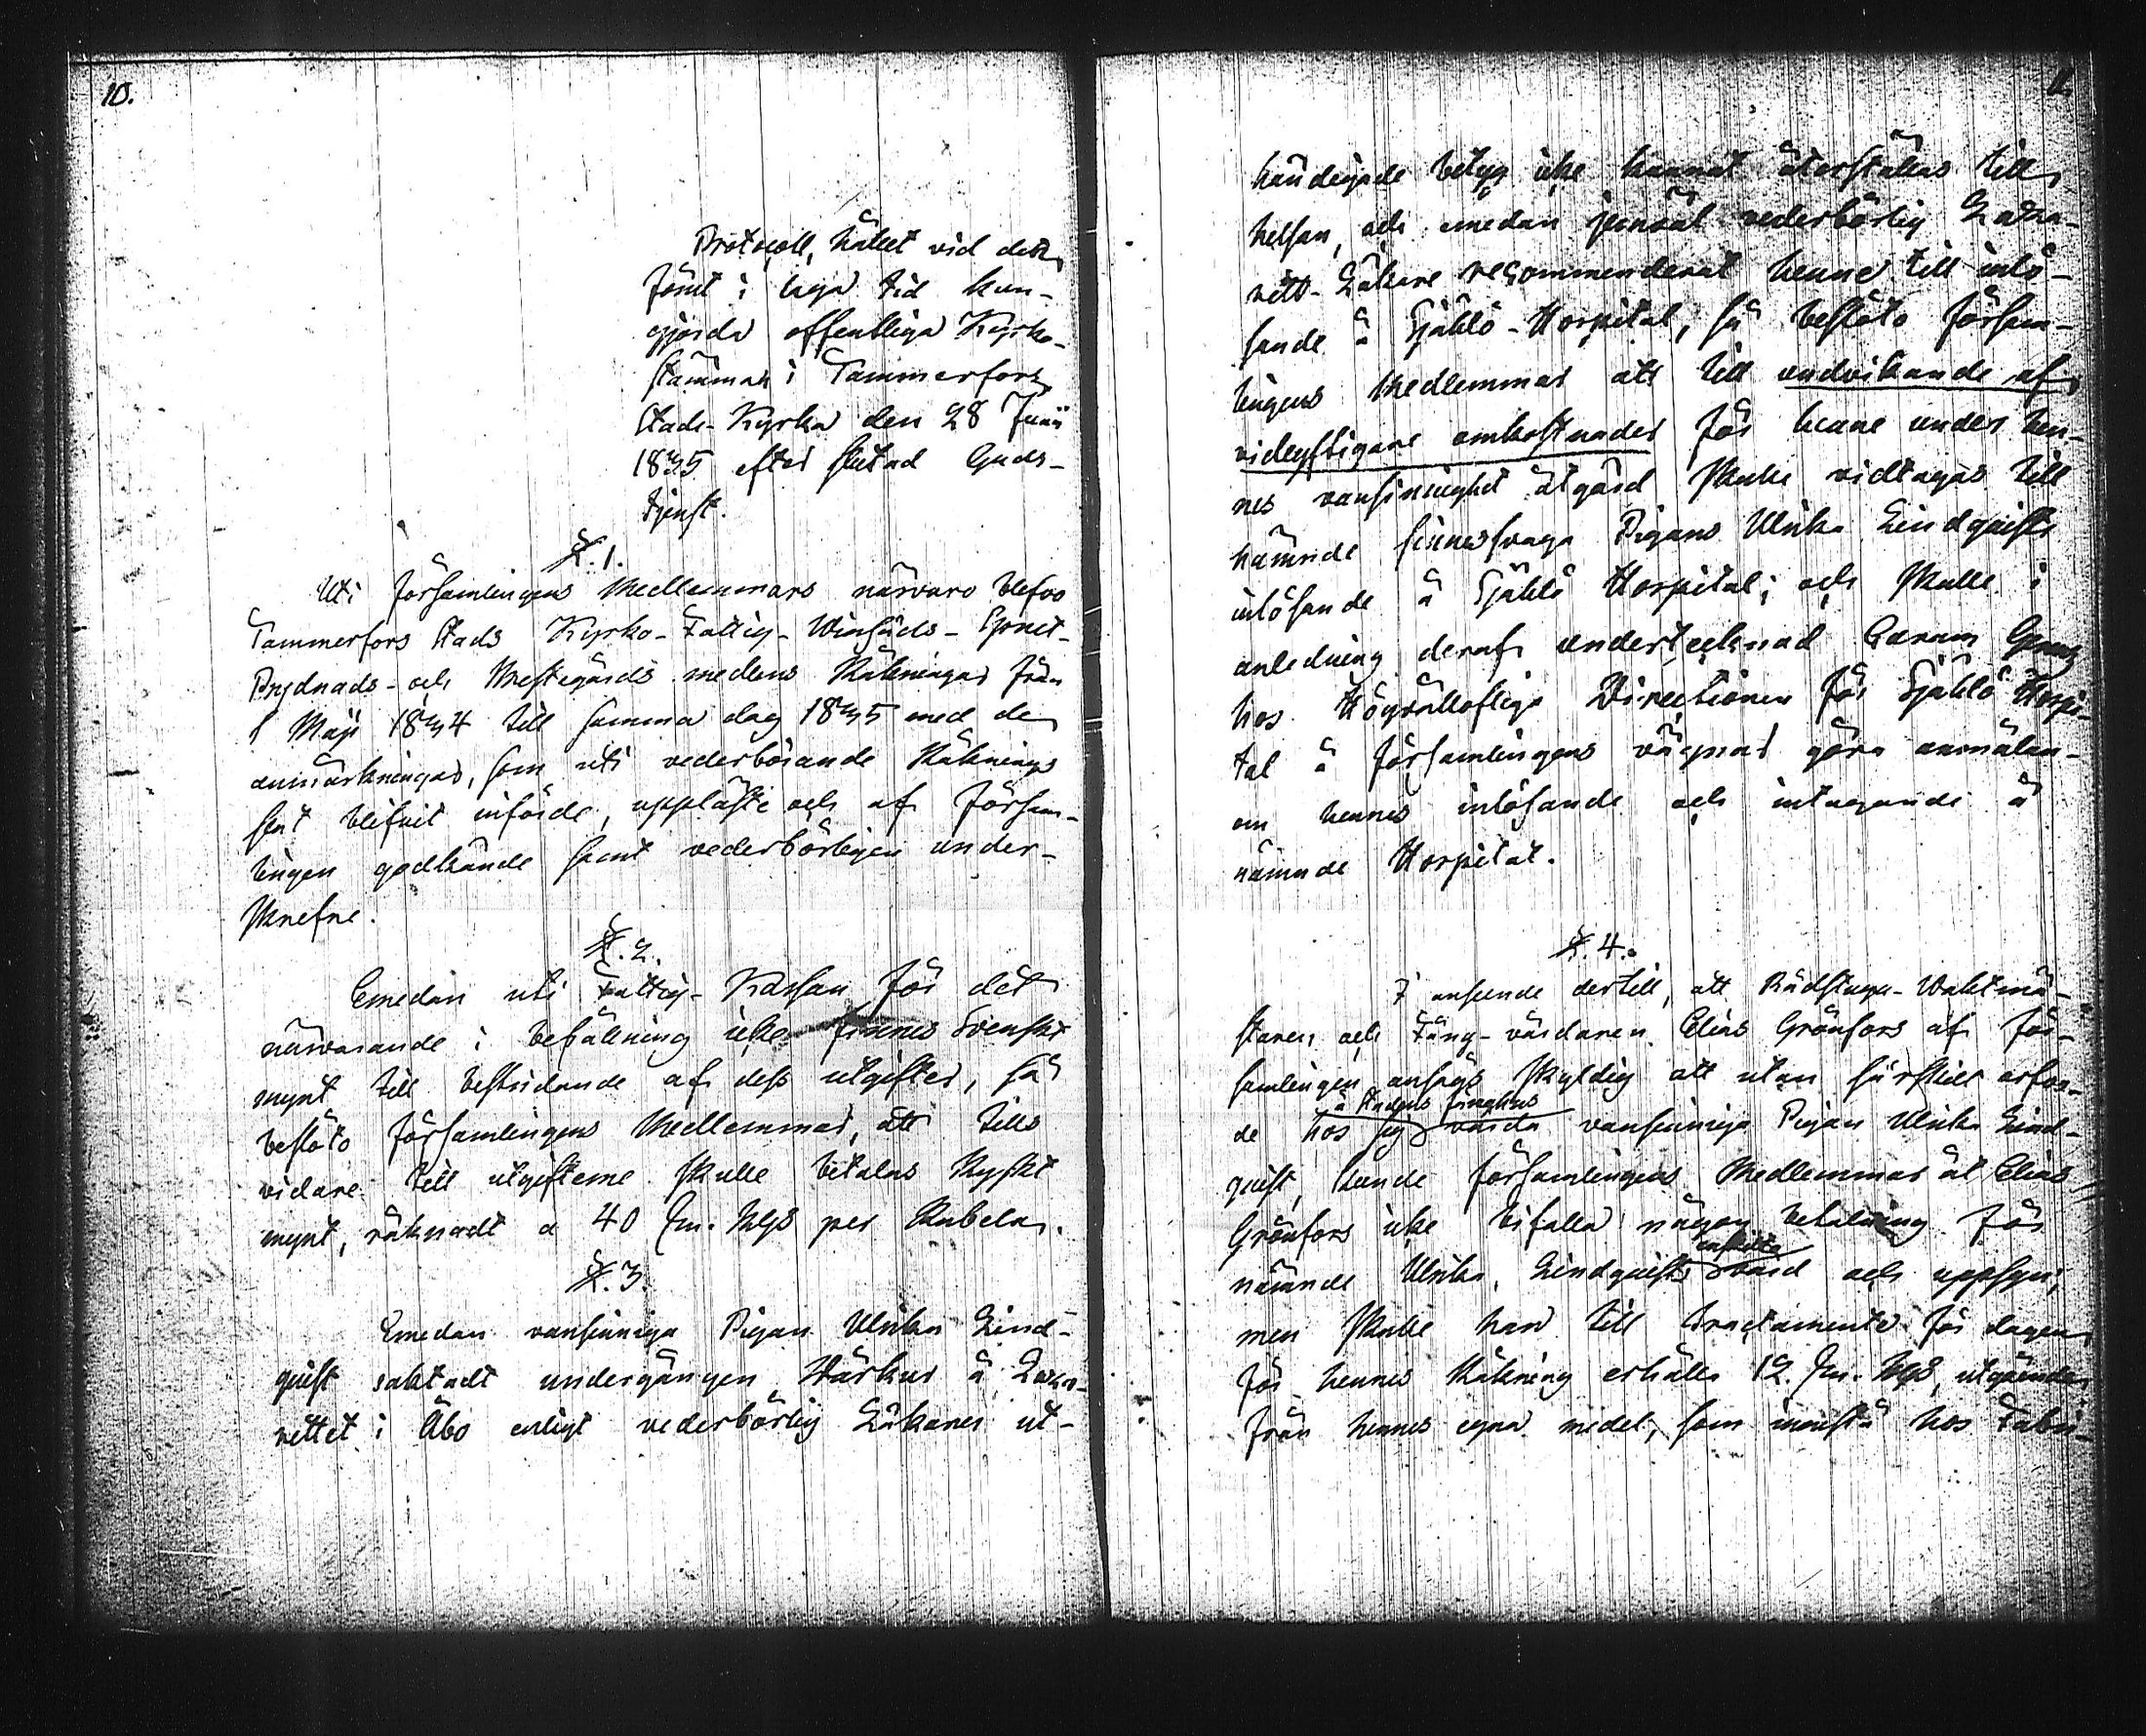 10.
Protocoll, hållet vid den
förut i laga tid kun-
gjorda offentliga Kyrko-
stämman i Tammerfors
Stads-Kyrka den 28 Junii
1835 efter slutad Guds-
tjenst.
§. 1.
Uti Församlingens Medlemmars närvaro blefvo
Tammerfors Stads Kyrko- Fattig- Winhuds-
Prydnads- och Prestegårds medlens Räkningar från
1 Maji 1834 till samma dag 1835 med de
anmärkningar, som uti vederbörande Räknings
blifvit införde, uppläste och af Försam-
lingen godkände samt vederbörligen under-
skrefne.
§. 2.
Emedan uti Fattig-Kassan för det
närvarande i behållning icke finnes Svenskt
mynt till bestridande af dess utgifter, så
beslöto Församlingens Medlemmar, att tills
vidare till utgifterne skulle betalas Ryskt
mynt, räknadt a 40 per Rubeln.
§. 3.
Emedan vansinniga Pigan Ulrika Lind-
quist oaktadt undergången kur å Laza-
rettet i Åbo enligt vederbörlig Läkares ut-
11.
händigade betyg icke kunnat återställas till
helsan, och emedan jemväl vederbörlig Laza-
retts-Läkare recommenderat henne till inlö-
sande å Själö-Hospital, så beslöto Försam-
lingens Medlemmar att till undvikande af
vidlyftigare omkostnader för henne under hen-
nes vansinnighet åtgärd skulle vidtagas till
nämnde sinnessvaga Pigans Ulrika Lindquists
inlösande å Själö Hospital; och skulle i
anledning deraf undertecknad
hos Högvällofliga Directionen för Själö Hospi-
tal å Församlingens vägnar göra anmälan
om hennes inlösande och intagande å
nämnde Hospital.
§. 4.
I anseende dertill, att Rådstugu-Waktmä-
staren och Fång-vårdaren Elias Grönfors af För-
samlingen ansågs skyldig att utan särskildt arfvo-
å Stadens finehus
de hos sig vårda vansinniga Pigan Ulrika Lind-
quist, kunde Församlingens Medlemmar åt Elias
Grönfors icke bifalla någon betalning för
enskilta
nämnde Ulrika Lindquists vård och uppsyn;
men skulle han till tractamente för dagen
för hennes Räkning erhålla 12. utgående
från hennes egna medel, som innestå hos Fabri-